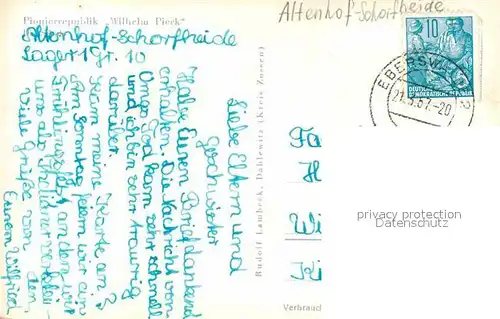 Pionierrepublik „Wilhelm Pieck"
Altenhof-Schorfheide
Altenhof-Schorfheide
Lager 1 Gr. 10
Liebe Eltern und
Geschwister
Habe Euren Brief dankend
erhalten. Die Nachricht von
Omas Tod kam sehr schnell
und ich bin sehr traurig
darüber.
Kam meine Karte an?
Am Sonntag feiern wir ein
Frühlingsfest an dem wir
uns als
viele Grüße von
Eurem Wilfried
Rudolf Lambeck, Dahlewitz (Kreis Zossen)
10
DEUTSCHE
DEMOKRATISCHE REPUBLIK
EBERSW
21.5.57.-20
Fa
H
Wi
privacy protection
Datenschutz
Verbrauch